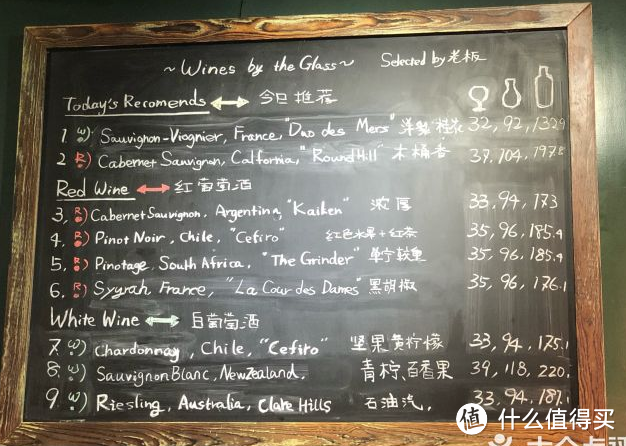 ~Wines by the Glass~ Selected by老板
Today's Recomends ↔ 今日推荐
1. W) Sauvignon-Viognier, France, "Duo des Mers" 洋梨 桂花 32, 92, 132.9
2. R) Cabernet Sauvignon, Calfornia, "Round Hill" 木桶香 37, 104, 197.8
Red Wine ↔ 红葡萄酒
3, R) Cabernet Sauvignon, Argentina, "Kaiken" 浓厚 33, 94, 173
4. R) Pinot Noir, Chile, "Cefiro" 红色水果+红茶 35, 96, 185.4
5, R) Pinotage, South Africa, "The Grinder" 单宁较重 35, 96, 185.4
6. R) Syyrah France, "La Cour des Dames" 黑胡椒 35, 96, 176.1
White Wine ↔ 白葡萄酒
7. W) Chardonnay, Chile, "Cefiro" 坚果 黄柠檬 33, 94, 175.1
8. W) Sauvignon Blanc, Newzealand, 青柠、百香果 39, 118, 220.
9. W) Riesling, Australia, Clare Hills 石油汽, 33, 94, 181.1
值 什么值得买